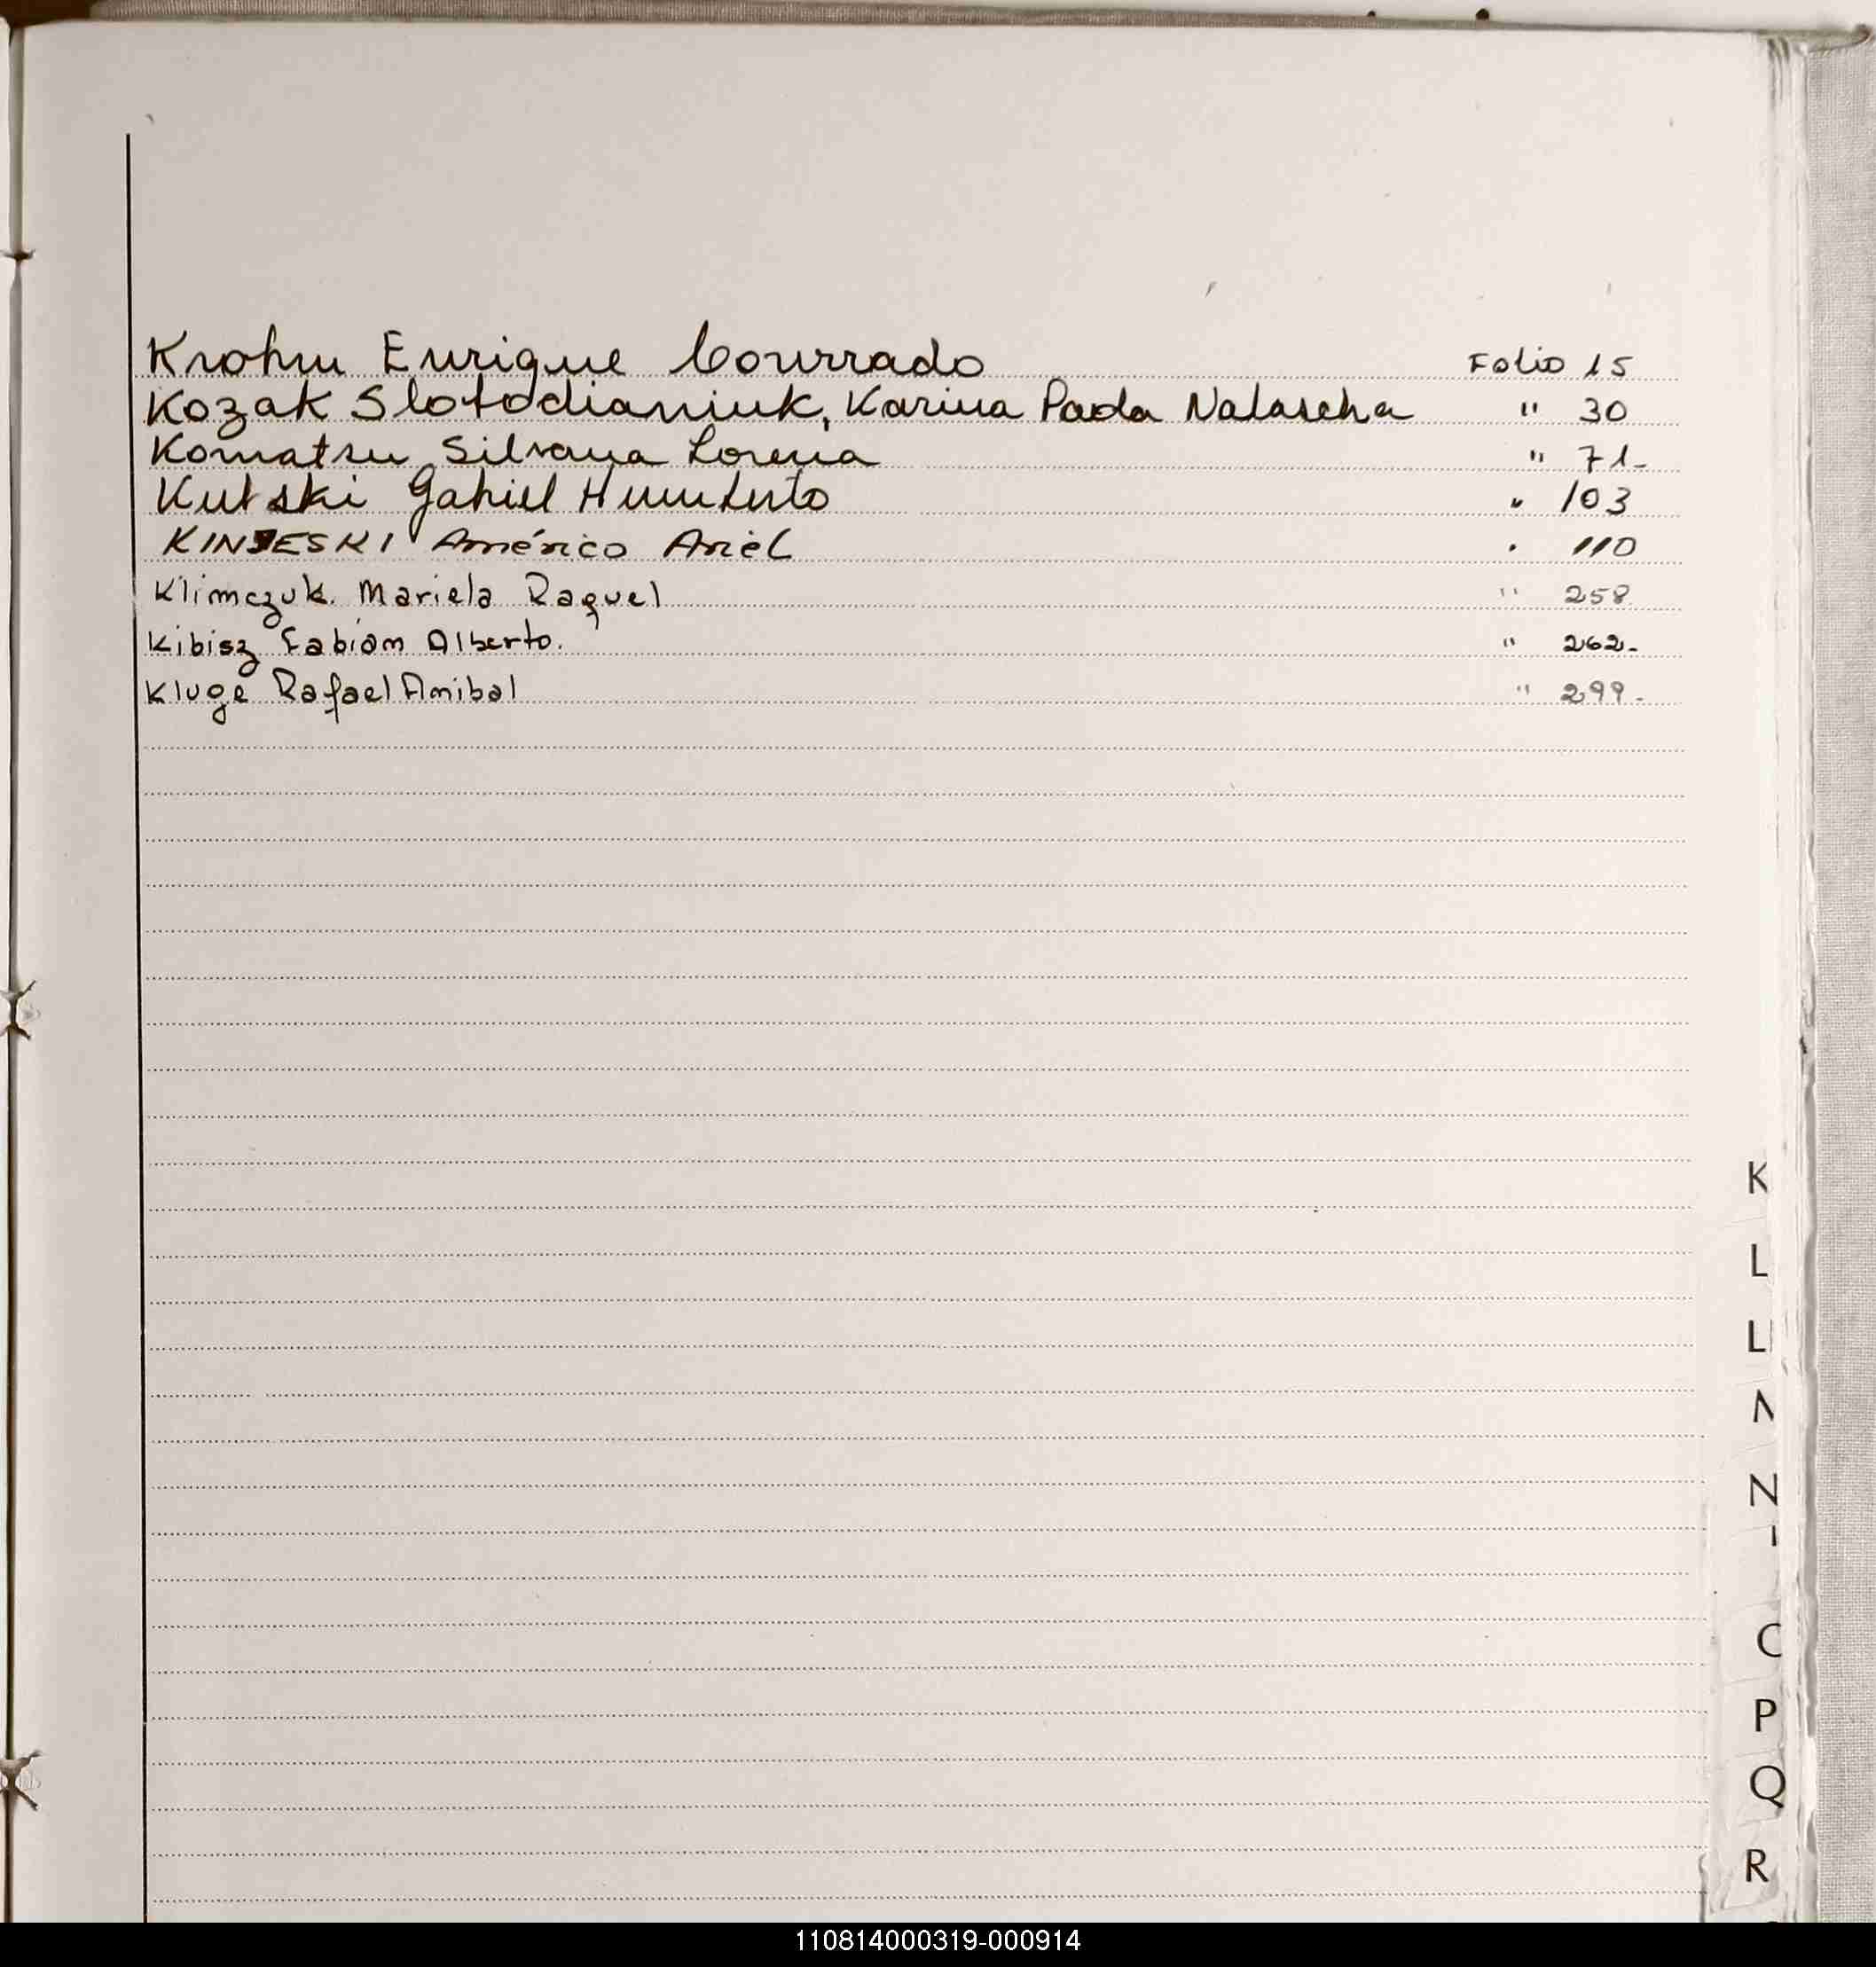 Krohn Enrique Conrrado Folio 15
Kozak Slotodianiuk, Karina Paola Natascha " 30
Komatsu Silvana Lorena " 71-
Kutski Gabriel Humberto " 103
KINDESKI Américo Ariel " 110
Klimczuk. Mariela Raquel " 258
Kibisz Fabian Alberto. " 262-
Kluge Rafael Anibal " 299-
K
L
Ll
N
P
Q
R
110814000319-000914